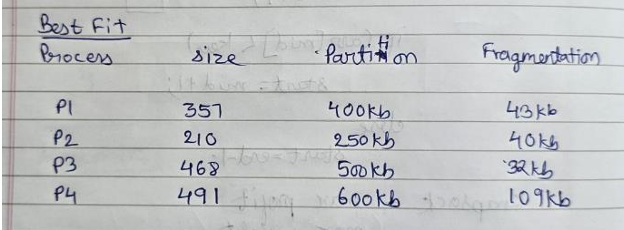 Best Fit
Process size Partition Fragmentation
P1 357 400kb 43kb
P2 210 250kb 40kb
P3 468 500kb 32kb
P4 491 600kb 109kb